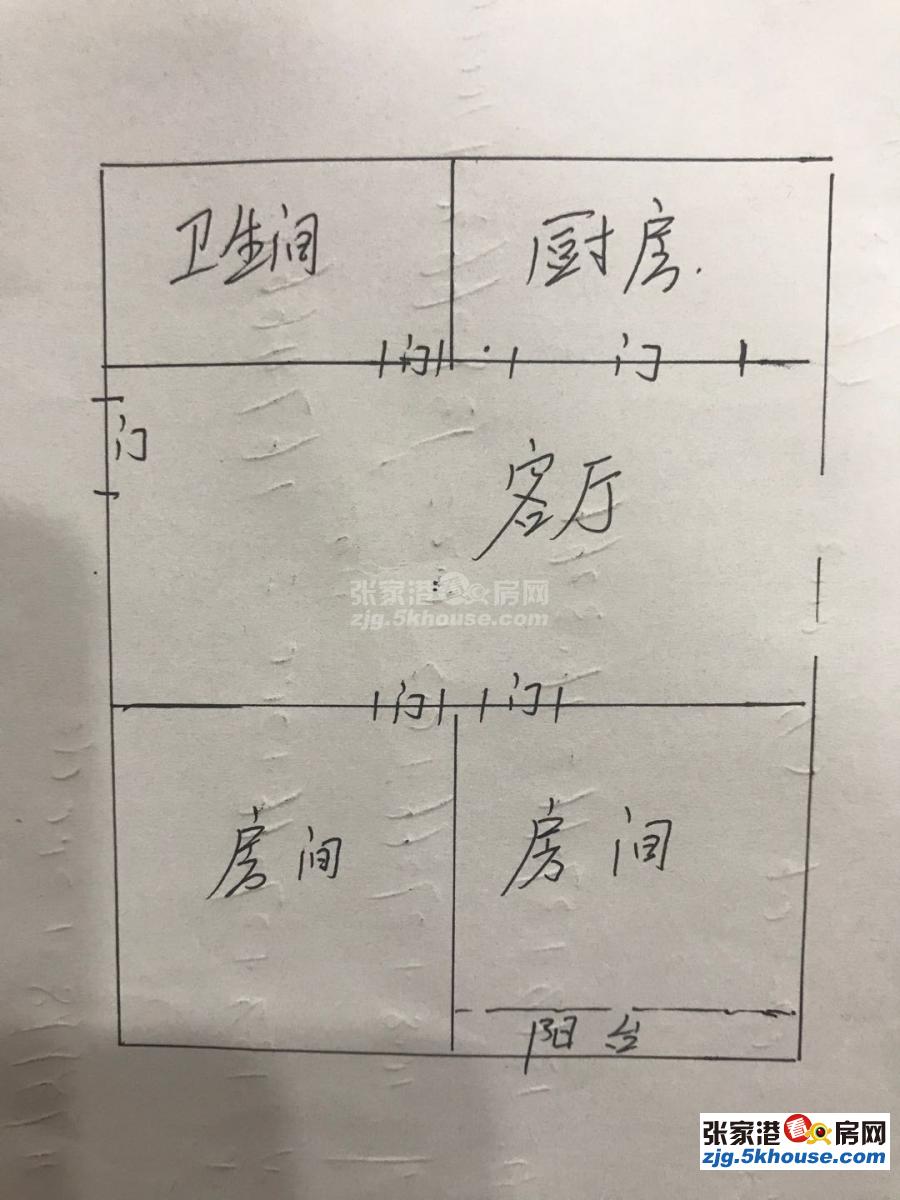 卫生间 厨房
门 门
门
客厅
张家港看房网
zjg.5khouse.com
门 门
房间 房间
阳台
张家港看房网
zjg.5khouse.com